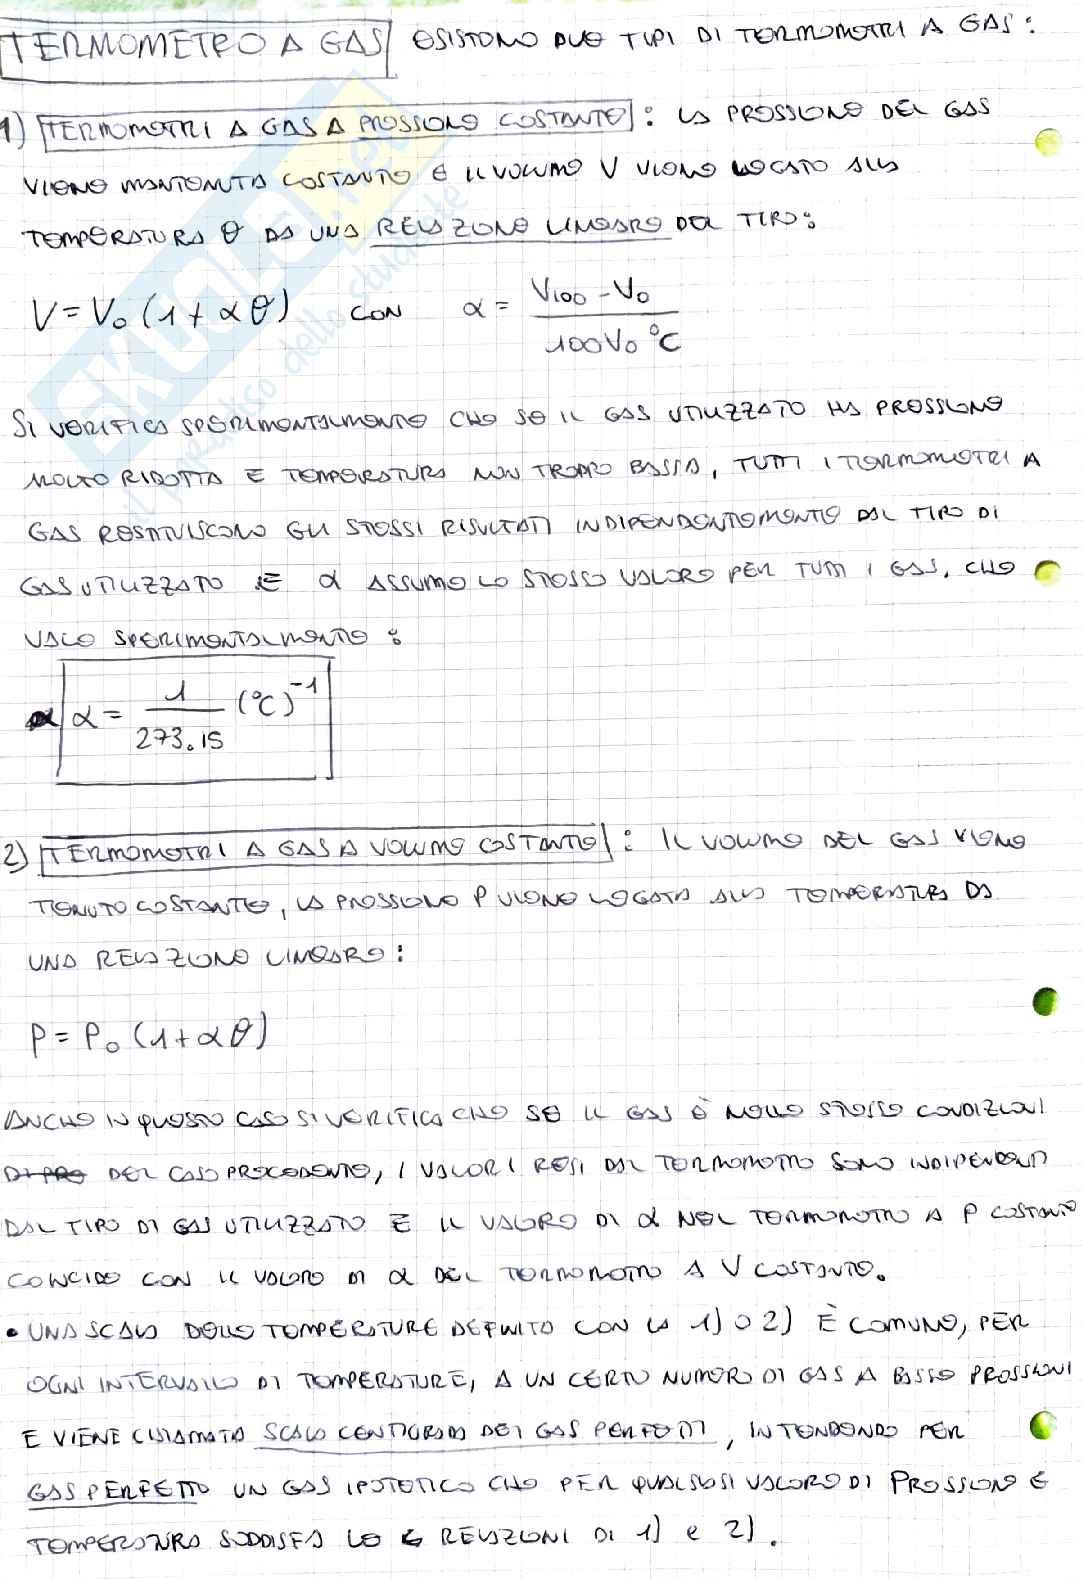 TERMOMETRO A GAS ESISTONO DUE TIPI DI TERMOMETRI A GAS:
1) TERMOMETRI A GAS A PRESSIONE COSTANTE: LA PRESSIONE DEL GAS
VIENE MANTENUTA COSTANTE E IL VOLUME V VIENE LEGATO ALLA
TEMPERATURA θ DA UNA RELAZIONE LINEARE DEL TIPO:
V = V₀ (1 + αθ) CON α = (V₁₀₀ - V₀) / (100 V₀ °C)
SI VERIFICA SPERIMENTALMENTE CHE SE IL GAS UTILIZZATO HA PRESSIONE
MOLTO RIDOTTA E TEMPERATURA NON TROPPO BASSA, TUTTI I TERMOMETRI A
GAS RESTITUISCONO GLI STESSI RISULTATI INDIPENDENTEMENTE DAL TIPO DI
GAS UTILIZZATO E α ASSUME LO STESSO VALORE PER TUTTI I GAS, CHE
VALE SPERIMENTALMENTE:
α = 1 / 273.15 (°C)⁻¹
2) TERMOMETRI A GAS A VOLUME COSTANTE: IL VOLUME DEL GAS VIENE
TENUTO COSTANTE, LA PRESSIONE P VIENE LEGATA ALLA TEMPERATURA DA
UNA RELAZIONE LINEARE:
P = P₀ (1 + αθ)
ANCHE IN QUESTO CASO SI VERIFICA CHE SE IL GAS È NELLE STESSE CONDIZIONI
DI PRE DEL CASO PRECEDENTE, I VALORI RESI DAL TERMOMETRO SONO INDIPENDENTI
DAL TIPO DI GAS UTILIZZATO E IL VALORE DI α NEL TERMOMETRO A P COSTANTE
COINCIDE CON IL VALORE DI α DEL TERMOMETRO A V COSTANTE.
• UNA SCALA DELLE TEMPERATURE DEFINITA CON LA 1) O 2) È COMUNE, PER
OGNI INTERVALLO DI TEMPERATURE, A UN CERTO NUMERO DI GAS A BASSE PRESSIONI
E VIENE CHIAMATA SCALA CENTIGRADA DEI GAS PERFETTI, INTENDENDO PER
GAS PERFETTO UN GAS IPOTETICO CHE PER QUALSIASI VALORE DI PRESSIONE E
TEMPERATURA SODDISFA LE RELAZIONI DI 1) e 2).
SKUOLA.net
il paradiso dello studente